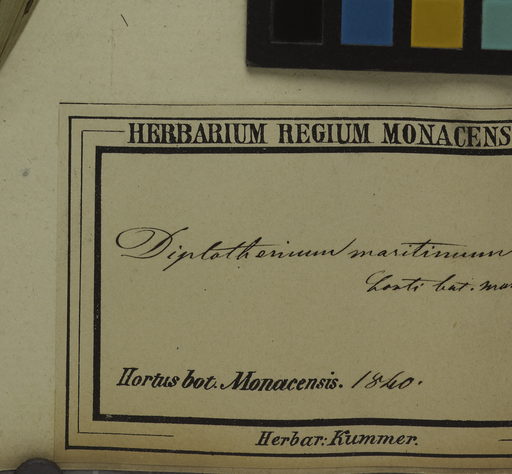 HERBARIUM REGIUM MONACENS
Diplotherium maritimum
horti bot. mon
Hortus bot. Monacensis. 1840.
Herbar: Kummer.